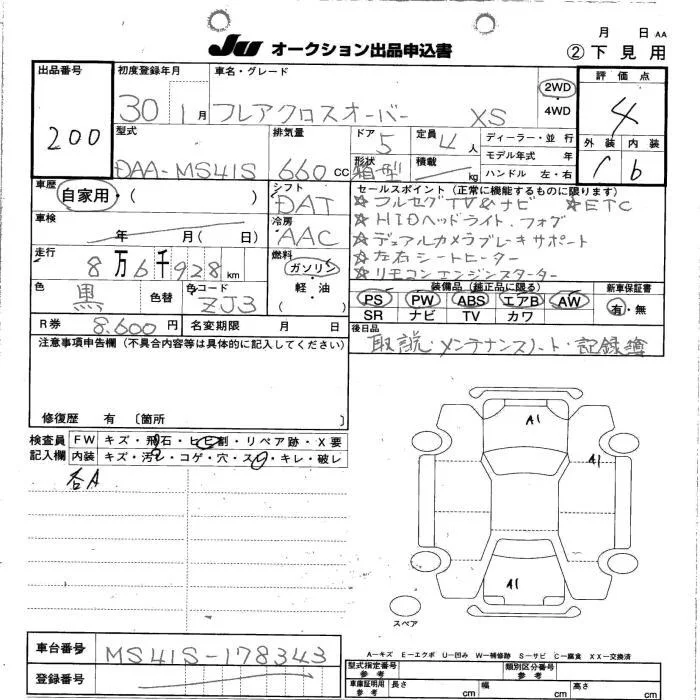 JU オークション出品申込書
月 日 AA
② 下見用
出品番号
200
初度登録年月
30 1月
車名・グレード
フレアクロスオーバー XS
2WD
4WD
評価点
4
外装 内装
b
型式
DAA-MS41S
排気量
660 cc
ドア
5
定員
4人
形状
箱型
積載
kg
ディーラー・並行
モデル年式 年
ハンドル 左・右
車歴
自家用・( )
シフト
DAT
車検
年 月( 日)
冷房
AAC
走行
8万6千928km
燃料
ガソリン
軽油
( )
色
黒
色替
色コード
ZJ3
R券
8,600円
名変期限 月 日
セールスポイント(正常に機能するものに限ります)
☆フルセグTV&ナビ ☆ETC
☆HIDヘッドライト、フォグ
☆デュアルカメラブレーキサポート
☆左右シートヒーター
☆リモコンエンジンスターター
装備品(純正品に限る)
PS PW ABS エアB AW
SR ナビ TV カワ
新車保証書
有・無
後日品
取説・メンテナンスノート・記録簿
注意事項申告欄(不具合内容等は具体的に記入してください)
修復歴 有 〔箇所 〕
検査員
記入欄
FW キズ・飛石・ヒビ割・リペア跡・X要
内装 キズ・汚レ・コゲ・穴・スレ・キレ・破レ
A1
A1
A1
スペア
車台番号
MS41S-178343
登録番号
A−キズ E−エクボ U−凹み W−補修跡 S−サビ C−腐食 XX−交換済
型式指定番号
参考
類別区分番号
参考
車庫証明用
参考
長さ cm
幅 cm
高さ cm